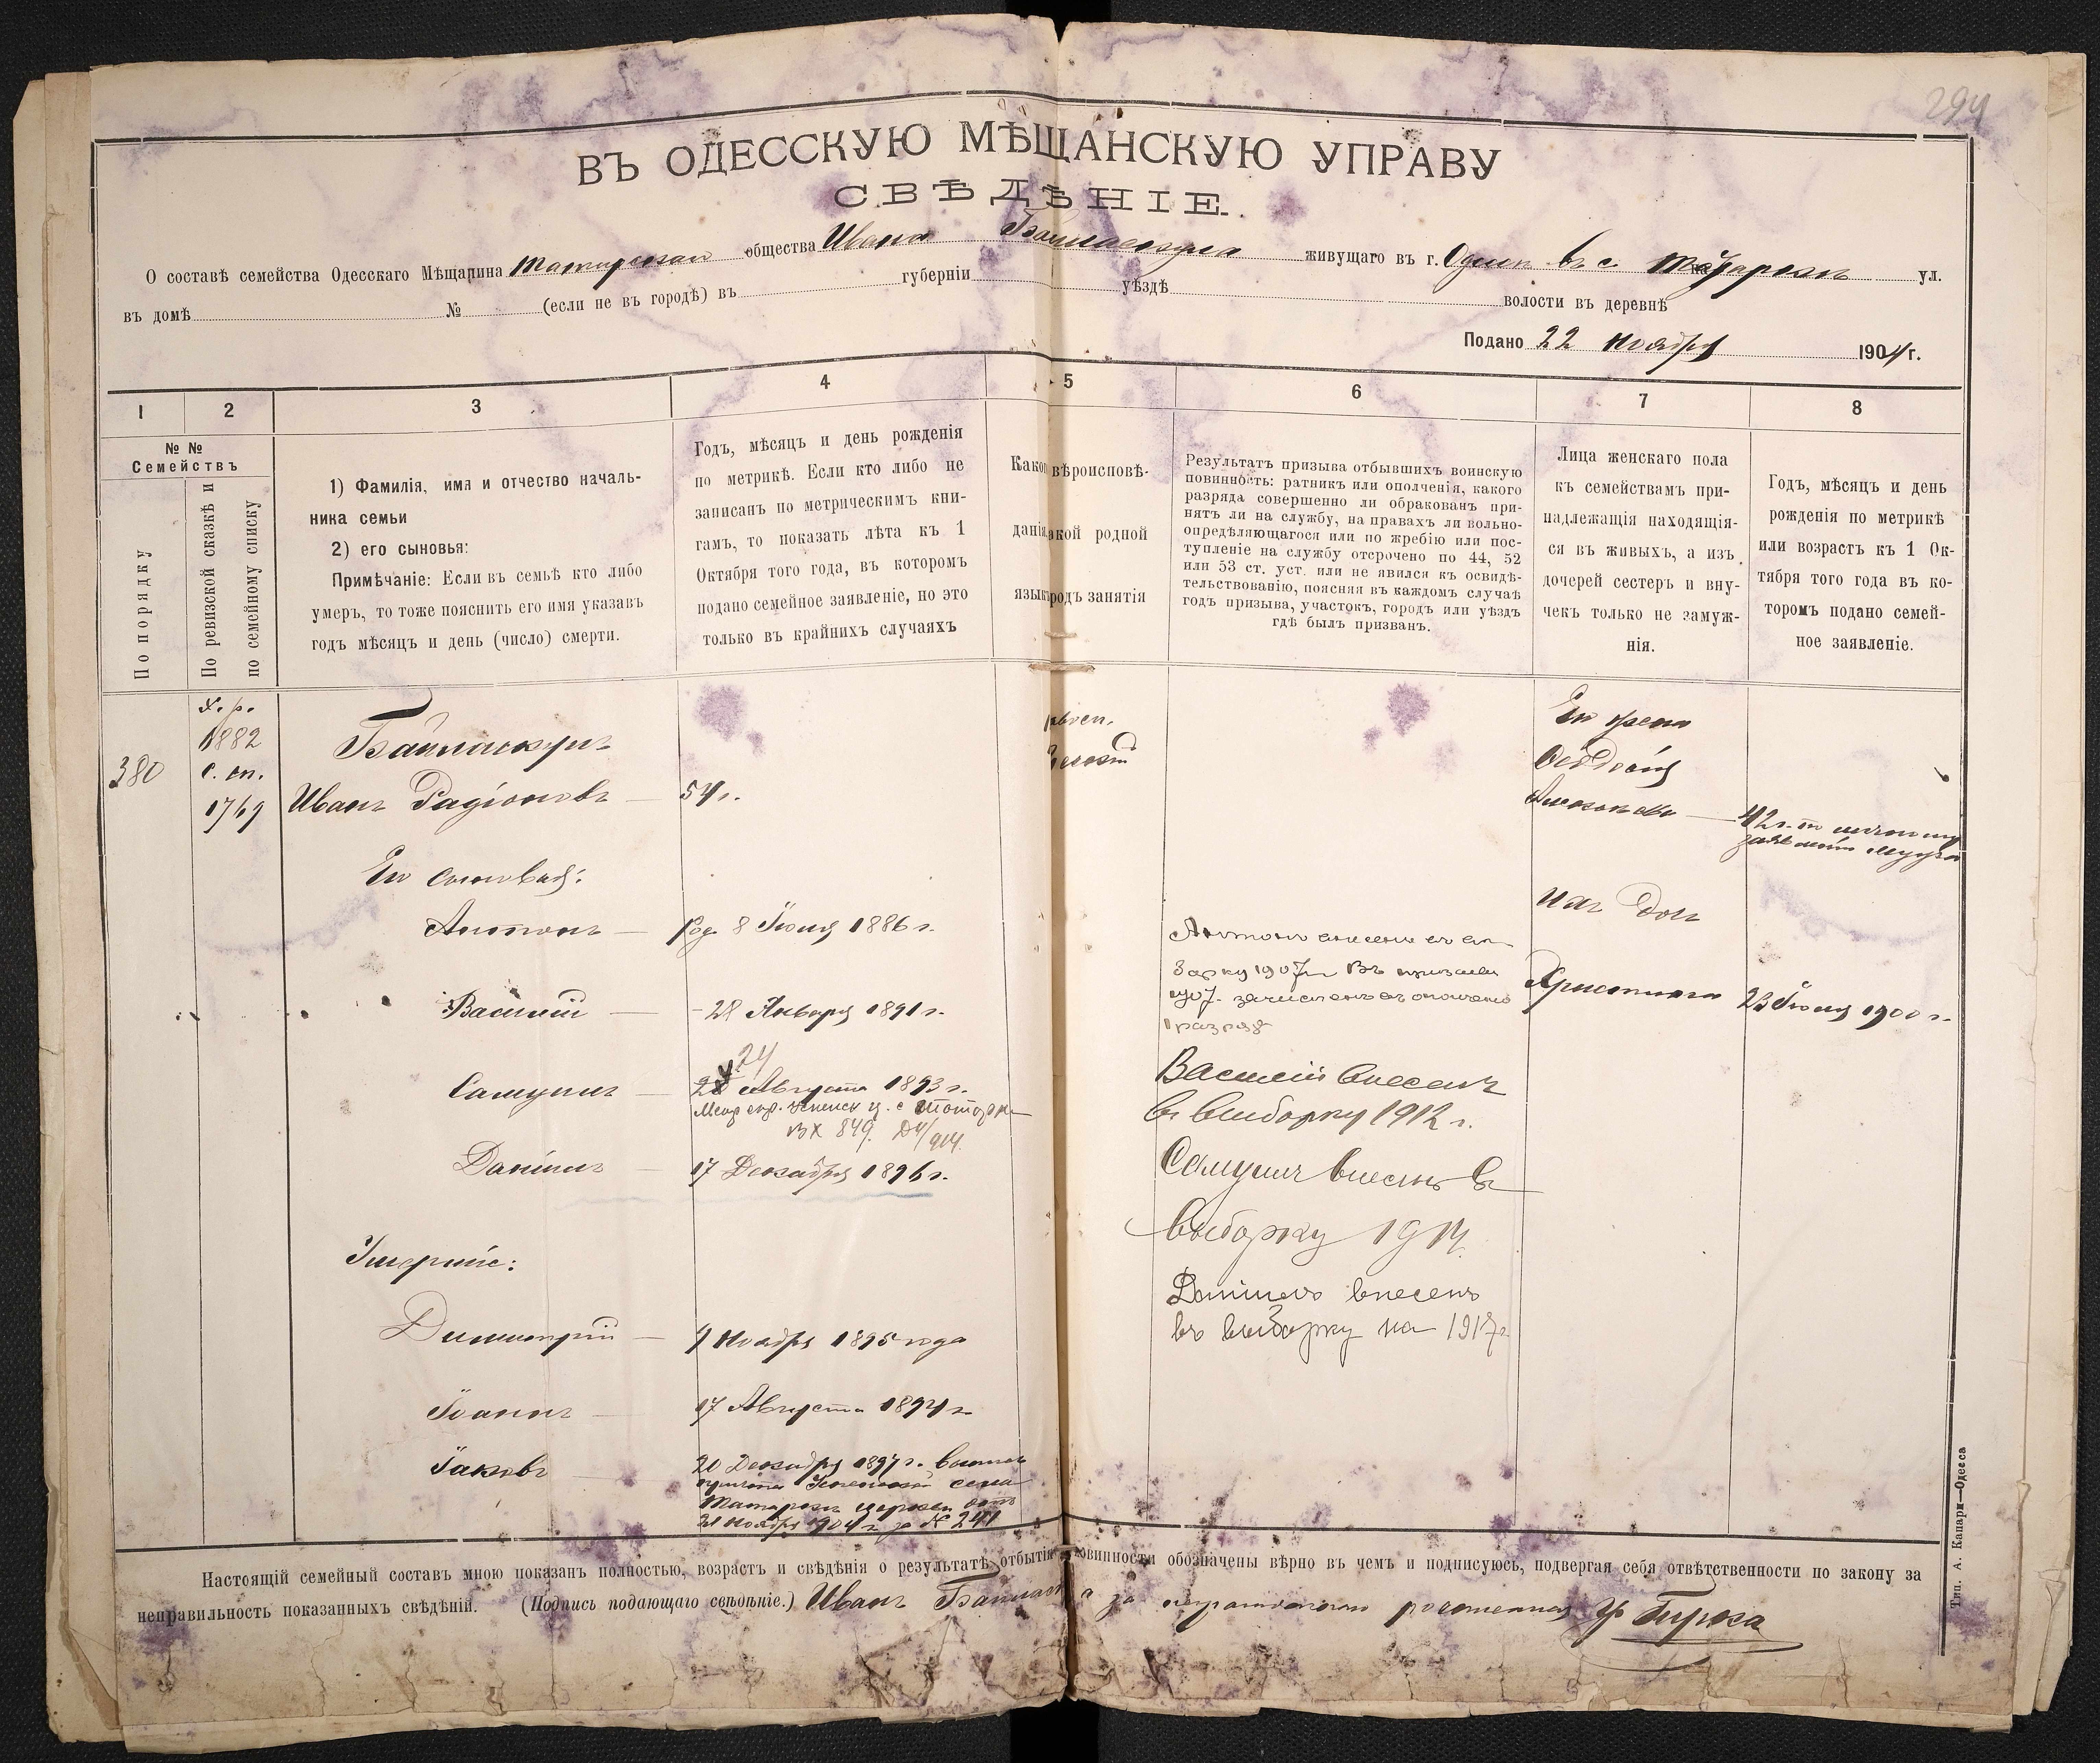 294
ВЪ ОДЕССКУЮ МѢЩАНСКУЮ УПРАВУ
СВѢДѢНІЕ.
О составѣ семейства Одесскаго Мѣщанина общества Ивана живущаго въ г. въ с. ул.
въ домѣ № (если не въ городѣ) въ губерніи уѣздѣ волости въ деревнѣ
Подано 22 Ноября 1904 г.
1 2 3 4 5 6 7 8
№ №
Семействъ
По порядку
По ревизской сказкѣ и
по семейному списку
1) Фамилія, имя и отчество началь-
ника семьи
2) его сыновья:
Примѣчаніе: Если въ семьѣ кто либо
умеръ, то тоже пояснить его имя указавъ
годъ мѣсяцъ и день (число) смерти.
Годъ, мѣсяцъ и день рожденія
по метрикѣ. Если кто либо не
записанъ по метрическимъ кни-
гамъ, то показать лѣта къ 1
Октября того года, въ которомъ
подано семейное заявленіе, но это
только въ крайнихъ случаяхъ
вѣроисповѣ-
родной
занятія
Результатъ призыва отбывшихъ воинскую
повинность: ратникъ или ополченія, какого
разряда совершенно ли обракованъ при-
нятъ ли на службу, на правахъ ли вольно-
опредѣляющагося или по жребію или пос-
тупленіе на службу отсрочено по 44, 52
или 53 ст. уст. или не явился къ освидѣ-
тельствованію, поясняя въ каждомъ случаѣ
годъ призыва, участокъ, городъ или уѣздъ
гдѣ былъ призванъ.
Лица женскаго пола
къ семействамъ при-
надлежащія находящія-
ся въ живыхъ, а изъ
дочерей сестеръ и вну-
чекъ только не замуж-
нія.
Годъ, мѣсяцъ и день
рожденія по метрикѣ
или возрастъ къ 1 Ок-
тября того года въ ко-
торомъ подано семей-
ное заявленіе.
380
1882
с. сп.
1769
Иванъ Радіоновъ — 54 г.
Его жена
Его сыновья:
Антонъ — Род. 8 Іюля 1886 г.
Василій — 28 Января 1891 г.
24
Самуилъ — Августа 1893 г.
вх 849.
Даніилъ — 17 Декабря 1896 г.
Умершіе:
Димитрій — Ноября 1895 года
Іоаннъ — 17 Августа 1894 г.
Іаковъ — 20 Декабря 1897 г.
церкви отъ
21 Ноября 1904 г. за № 241
Антонъ внесенъ въ вы-
борку 1907 г. Въ призывъ
1907 г. зачисленъ въ ополченіе
1 разряда
Василій внесенъ
въ выборку 1912 г.
Самуилъ внесенъ въ
выборку 1914
Даніилъ внесенъ
въ выборку на 1917 г.
42 г. по личному
заявленію мужа
Ихъ дочь
Христина 23 Іюля 1900 г.
Настоящій семейный составъ мною показанъ полностью, возрастъ и свѣдѣнія о результатѣ отбытія повинности обозначены вѣрно въ чемъ и подписуюсь, подвергая себя отвѣтственности по закону за
неправильность показанныхъ свѣдѣній. (Подпись подающаго свѣдѣніе.) Иванъ
Тип. А. Капари—Одесса